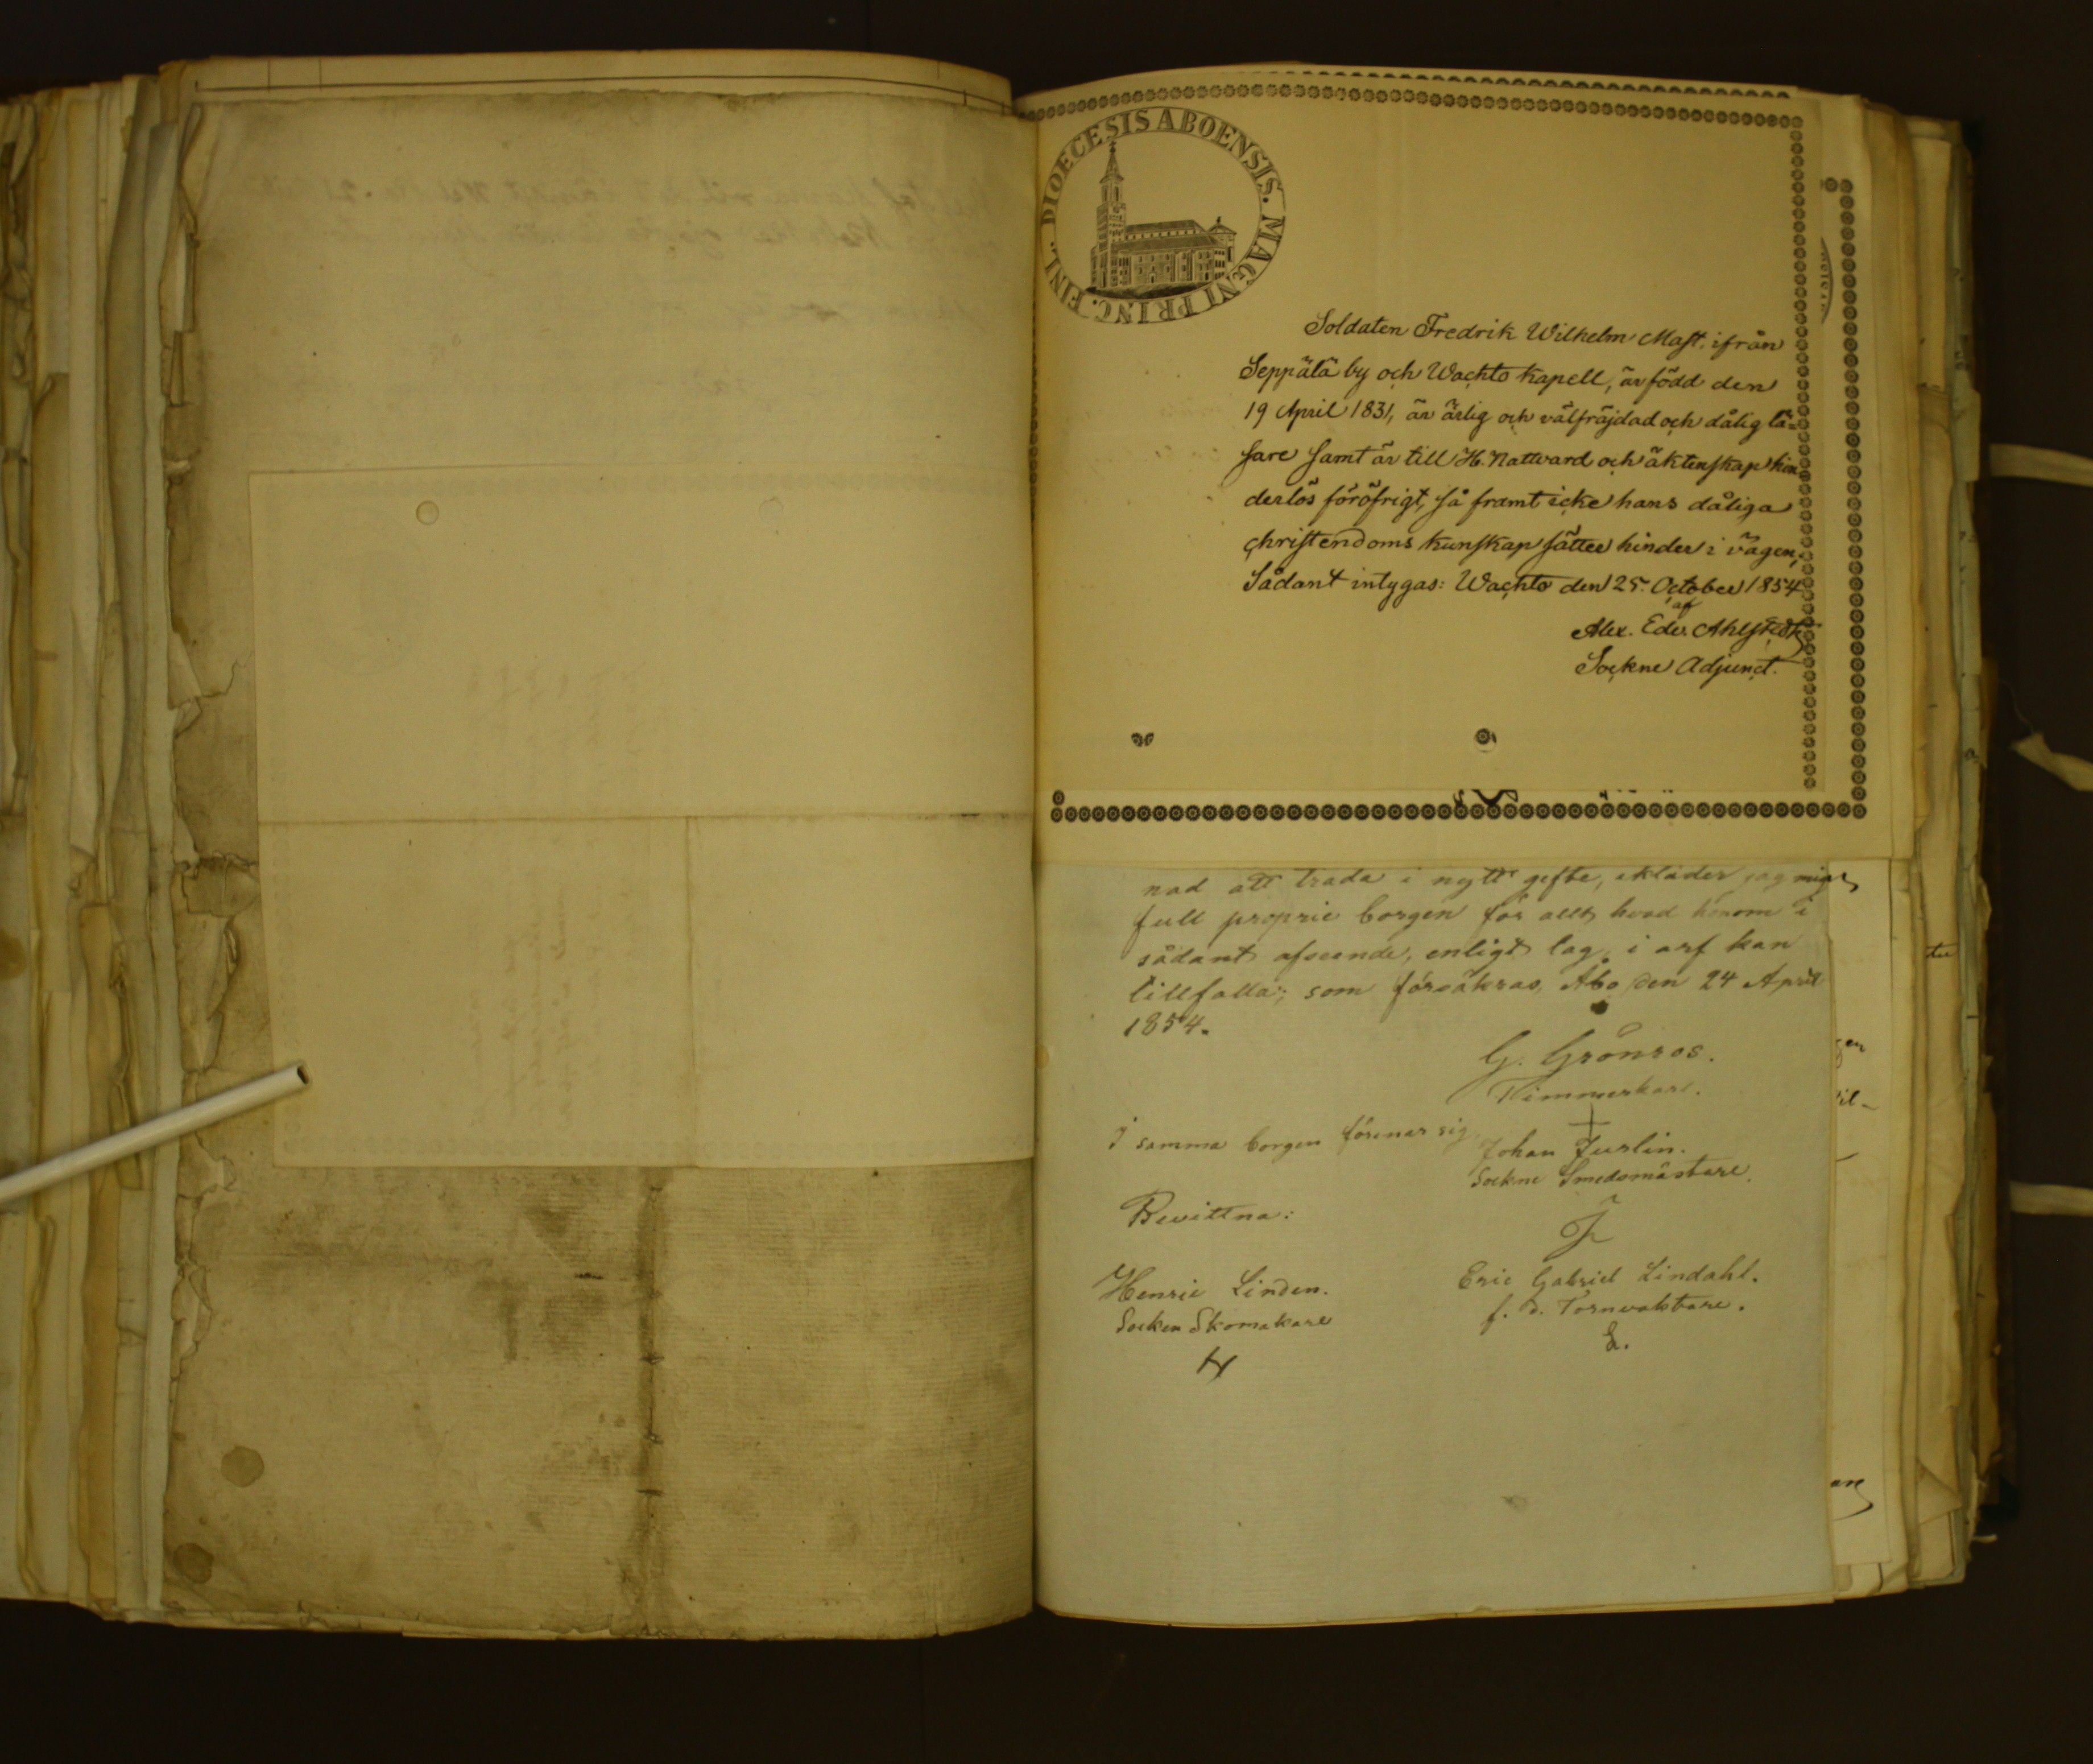 DIOECESIS ABOENSIS. MAGNI PRINC. FINL.
Soldaten Fredrik Wilhelm Mast, ifrån
Seppälä by och Wachto Kapell, är född den
19 April 1831, är ärlig och välfräjdad och dålig lä=
sare samt är till H. Nattvard och äktenskap hin
derlös föröfrigt, så framt icke hans dåliga
christendoms kunskap sätter hinder i vägen,
Sådant intygas: Wachto den 25. October 1854
af
Alex. Edv. Ahlstedt
Sockne Adjunct.
nad att träda i nytt gifte, ikläder jag mig
full proprie borgen för allt hvad honom i
sådant afseende, enligt lag, i arf kan
tillfalla; som försäkras, Åbo den 24 April
1854.
G. Grönros.
Timmerkarl.
I samma borgen förenar sig
Johan Jurlin.
Sockne Smedsmästare.
Bevittna:
Henric Linden.
Socken Skomakare
H
Eric Gabriel Lindahl.
f. d. Tornvaktare.
L.